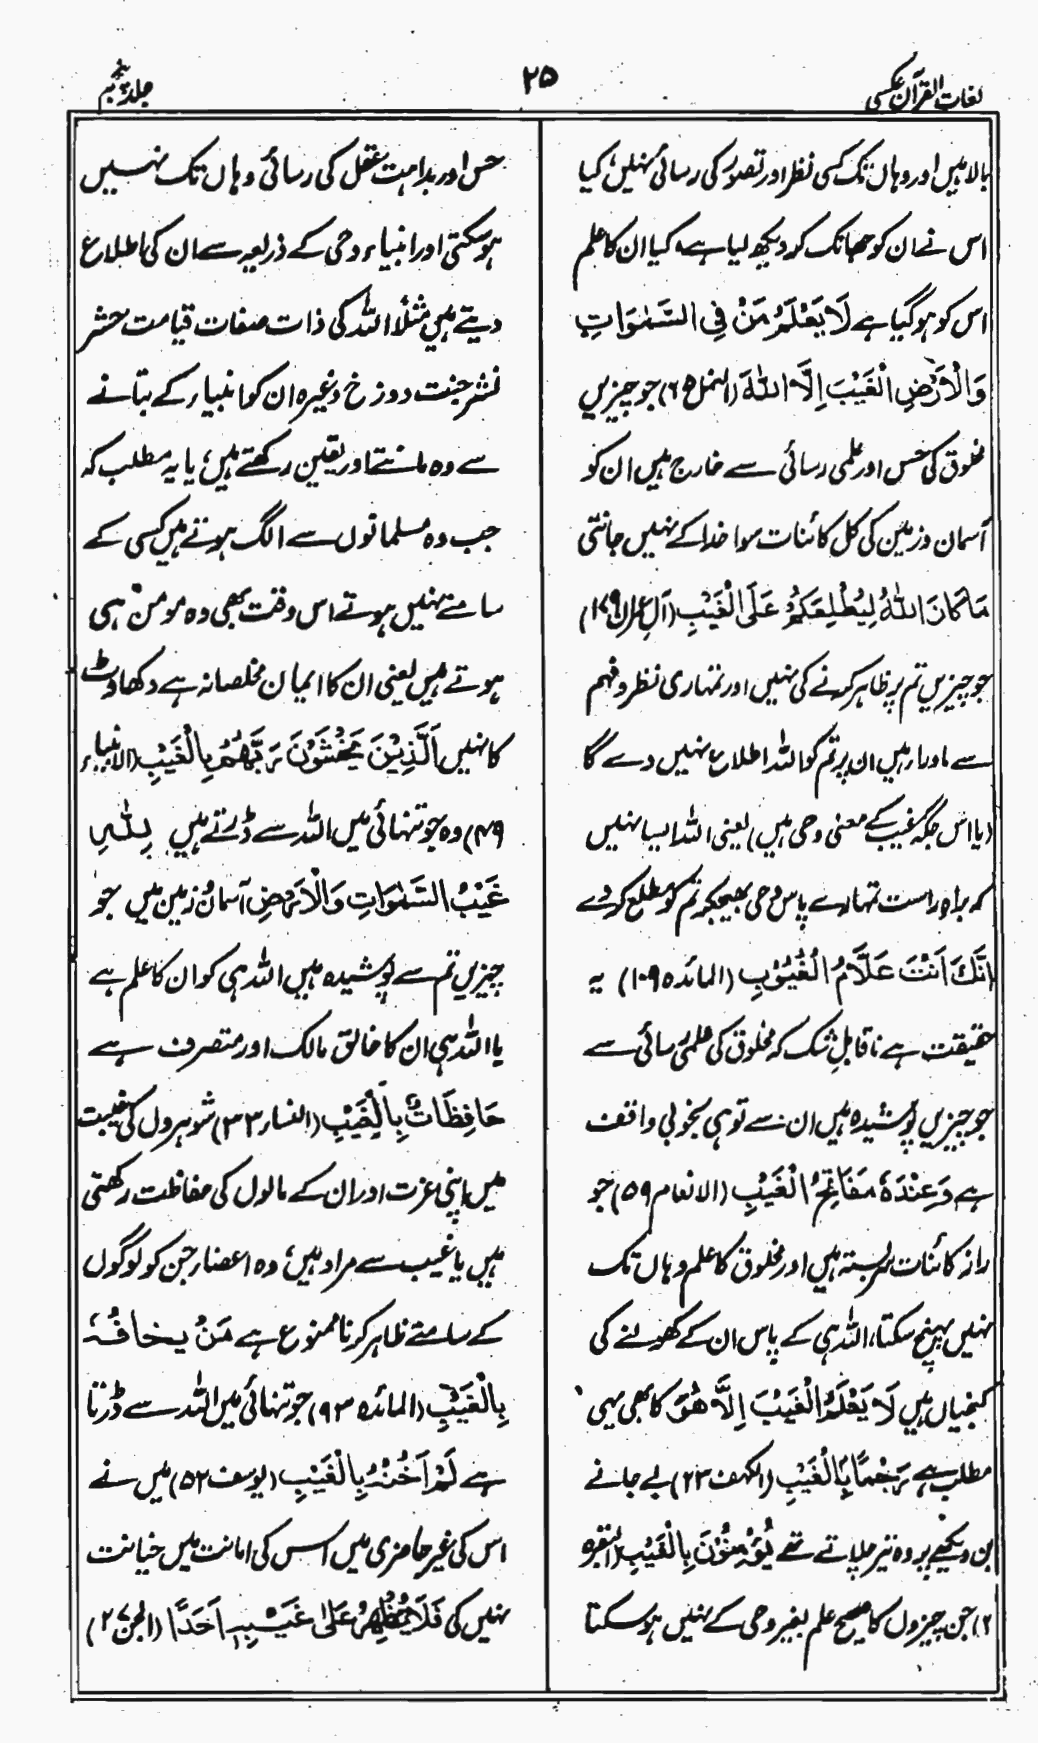 لغات القرآن عکسی
۲۵
جلد پنجم
بالا ہیں اور وہاں تک کسی نظر اور تصور کی رسائی نہیں، کیا
اس نے ان کو جھانک کر دیکھ لیا ہے، کیا ان کا علم
اس کو ہو گیا ہے لَا یَعْلَمُ مَنْ فِی السَّمٰوَاتِ
وَالْاَرْضِ الْغَیْبَ اِلَّا اللّٰهُ (النمل ۶۵) جو چیزیں
مخلوق کی حس اور علمی رسائی سے خارج ہیں ان کو
آسمان و زمین کی کل کائنات سوا خدا کے نہیں جانتی
مَا کَانَ اللّٰهُ لِیُطْلِعَکُمْ عَلَی الْغَیْبِ (آل عمران ۱۷۹)
جو چیزیں تم پر ظاہر کرنے کی نہیں اور تمہاری نظر و فہم
سے ماورا ہیں ان پر تم کو اللہ اطلاع نہیں دے گا
(یا اس جگہ غیب کے معنی وحی ہیں) یعنی اللہ ایسا نہیں
کہ براہ راست تمہارے پاس وحی بھیجکر تم کو مطلع کر دے
اِنَّکَ اَنْتَ عَلَّامُ الْغُیُوْبِ (المائدہ ۱۰۹) یہ
حقیقت ہے ناقابلِ شک کہ مخلوق کی علمی رسائی سے
جو چیزیں پوشیدہ ہیں ان سے تو ہی بخوبی واقف
ہے وَعِنْدَهٗ مَفَاتِحُ الْغَیْبِ (الانعام ۵۹) جو
راز کائنات سربستہ ہیں اور مخلوق کا علم وہاں تک
نہیں پہنچ سکتا، اللہ ہی کے پاس ان کے کھولنے کی
کنجیاں ہیں لَا یَعْلَمُ الْغَیْبَ اِلَّا هُوَ کا بھی یہی
مطلب ہے رَجْمًا بِالْغَیْبِ (الکہف ۲۲) بے جانے
بن دیکھے پر وہ تیر چلاتے تھے یُؤْمِنُوْنَ بِالْغَیْبِ (البقرہ
۲) جن چیزوں کا صحیح علم بغیر وحی کے نہیں ہو سکتا
حس اور بداہت عقل کی رسائی وہاں تک نہیں
ہو سکتی اور انبیاء وحی کے ذریعہ سے ان کی اطلاع
دیتے ہیں مثلاً اللہ کی ذات صفات قیامت حشر
نشر جنت دوزخ وغیرہ ان کو انبیاء کے بتانے
سے وہ مانتے اور یقین رکھتے ہیں، یا یہ مطلب کہ
جب وہ مسلمانوں سے الگ ہوتے ہیں کسی کے
سامنے نہیں ہوتے اس وقت بھی وہ مومن ہی
ہوتے ہیں یعنی ان کا ایمان مخلصانہ ہے دکھاوٹ
کا نہیں اَلَّذِیْنَ یَخْشَوْنَ رَبَّهُمْ بِالْغَیْبِ (الانبیاء
۴۹) وہ جو تنہائی میں اللہ سے ڈرتے ہیں لِلّٰهِ
غَیْبُ السَّمٰوَاتِ وَالْاَرْضِ آسمان زمین میں جو
چیزیں تم سے پوشیدہ ہیں اللہ ہی کو ان کا علم ہے
یا اللہ ہی ان کا خالق مالک اور متصرف ہے
حَافِظَاتٌ بِالْغَیْبِ (النساء ۳۴) شوہروں کی غیبت
میں اپنی عزت اور ان کے مالوں کی حفاظت رکھتی
ہیں یا غیب سے مراد ہیں، وہ اعضاء جن کو لوگوں
کے سامنے ظاہر کرنا ممنوع ہے مَنْ یَخَافُهٗ
بِالْغَیْبِ (المائدہ ۹۴) جو تنہائی میں اللہ سے ڈرتا
ہے لَمْ اَخُنْهُ بِالْغَیْبِ (یوسف ۵۲) میں نے
اس کی غیر حاضری میں اس کی امانت میں خیانت
نہیں کی فَلَا یُظْهِرُ عَلٰی غَیْبِهٖ اَحَدًا (الجن ۲۶)